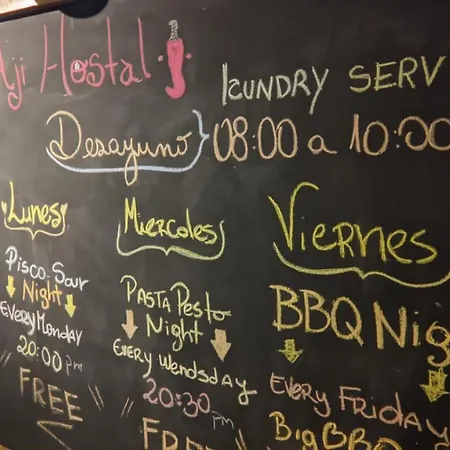 Aji Hostal
LAUNDRY SERV
Desayuno 08:00 a 10:00
Lunes
Pisco Sour
Night
Every Monday
20:00 pm
FREE
Miercoles
PASTA Pesto
Night
Every Wendsday
20:30 pm
FREE
Viernes
BBQ Nig
Every Friday
Big BBQ